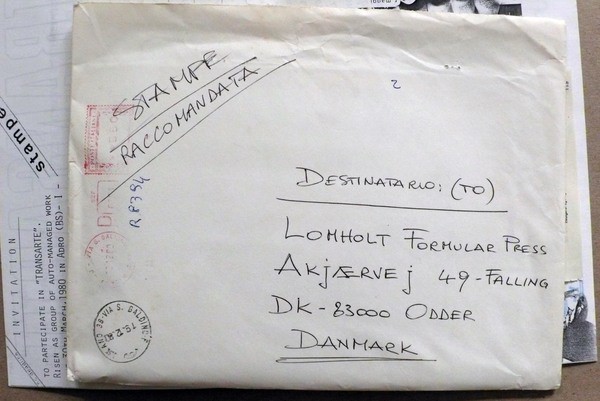 STAMPE
RACCOMANDATA
R 8394
2
DESTINATARIO: (TO)
LOMHOLT FORMULAR PRESS
AKJÆRVEJ 49-FALLING
DK-83000 ODDER
DANMARK
stampe
INVITATION
TO PARTECIPATE IN "TRANSARTE".
RISEN AS GROUP OF AUTO-MANAGED WORK
MARCH, 1980 IN ADRO (BS)- I -